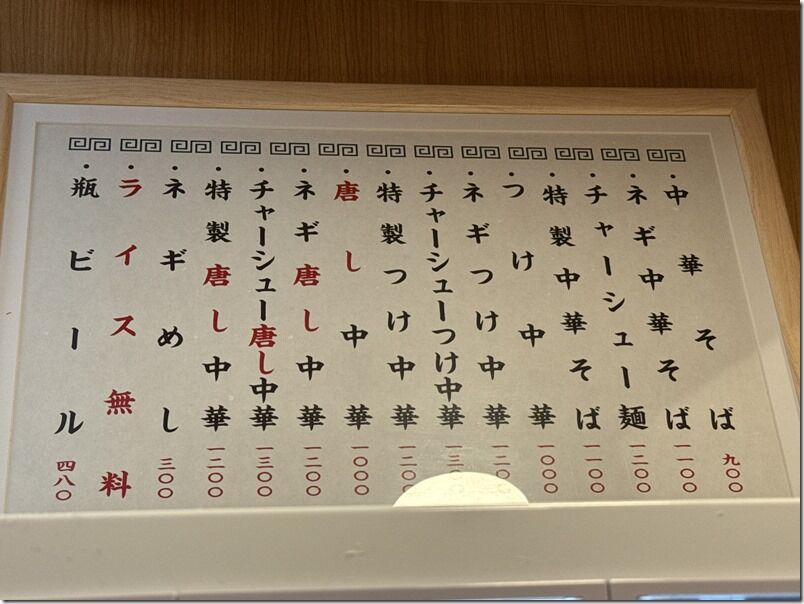 ・中華そば 九〇〇
・ネギ中華そば 一一〇〇
・チャーシュー麺 一二〇〇
・特製中華そば 一一〇〇
・つけ中華 一〇〇〇
・ネギつけ中華 一二〇〇
・チャーシューつけ中華
・特製つけ中華
・唐し中華 一〇〇〇
・ネギ唐し中華 一二〇〇
・チャーシュー唐し中華 一三〇〇
・特製唐し中華 一二〇〇
・ネギめし 三〇〇
・ライス無料
・瓶ビール 四八〇